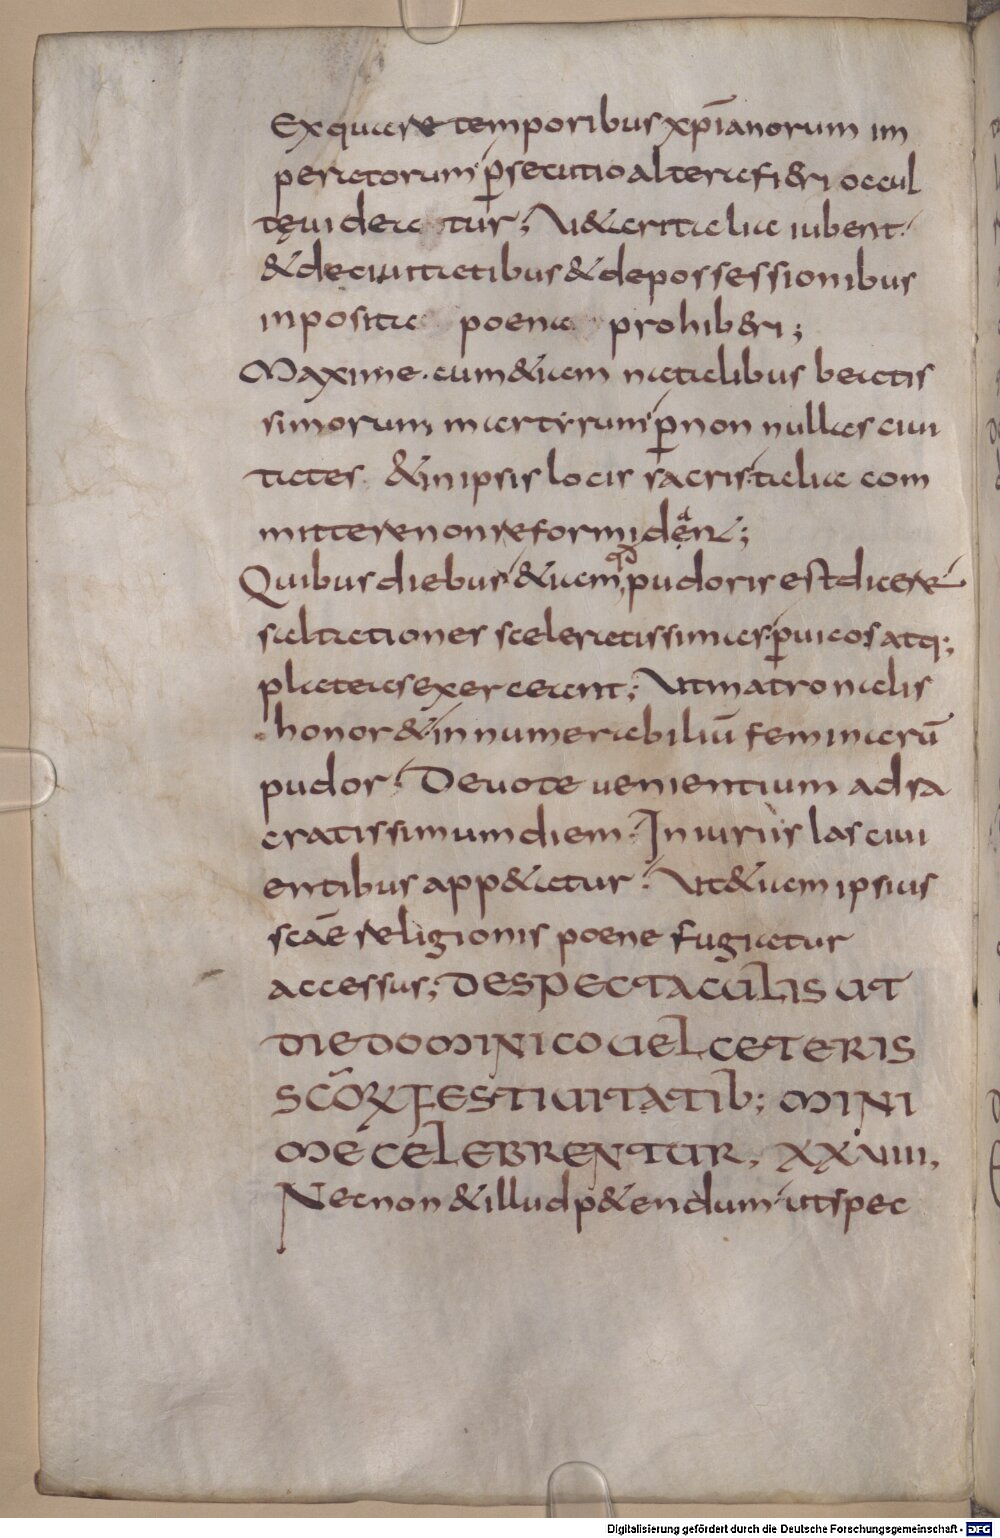 Ex qua re temporibus xp̄ianorum im
peratorum p̄secutio altera fi&ri occul
tę uidera tur; V&ari talia iubent.
& de ciuitatibus & de possessionibus
inposita poena prohib&ri;
Maxime. cum &iam natalibus beatis
simorum martyrum p̄ non nullas ciui
tates. & in ipsis locis sacris talia com
mittere non reformiden̄t;
Quibus diebus &iam qđ pudoris est dicere
saltationes sceleratissimas p̄ uicos atq;
plateas exerceant; Vt matronalis
honor & innumerabiliū feminarū
pudor. Deuote uenientium ad sa
cratissimum diem. Iniuriis lasciui
entibus app&atur. Vt &iam ipsius
scāe religionis poene fugiatur
accessus; DE SPECTACULIS UT
DIE DOMINICO UEL CETERIS
SCŌRꝜ FESTIUITATIB; MINI
ME CELEBRENTUR, XXVIIII,
Nec non & illud p&endum ut spec
Digitalisierung gefördert durch die Deutsche Forschungsgemeinschaft - DFG